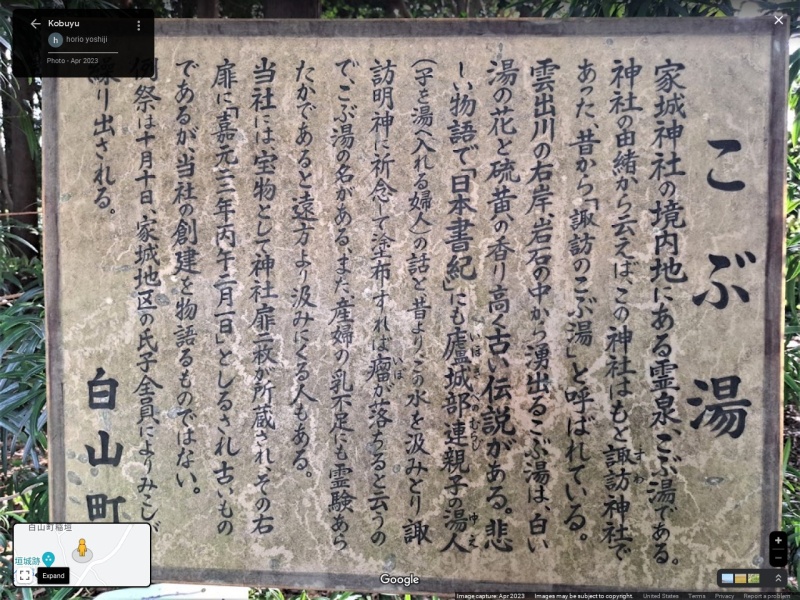 こぶ湯
家城神社の境内地にある霊泉、こぶ湯である。
神社の由緒から云えば、この神社はもと諏訪神社で
すわ
あった、昔から「諏訪のこぶ湯」と呼ばれている。
雲出川の右岸、岩石の中から湧出るこぶ湯は、白い
湯の花と硫黄の香り高く古い伝説がある。悲
しい物語で「日本書紀」にも廬城部連親子の湯人
ゆえ
(子を湯へ入れる婦人)の話と昔よりこの水を汲みどり諏
訪明神に祈念して塗布すれば瘤が落ちると云うの
いぼ
で、こぶ湯の名がある、また、産婦の乳不足にも霊験あら
たかであると遠方より汲みにくる人もある。
当社には宝物として神社扉二枚が所蔵され、その右
扉に「嘉元三年丙午二月一日」としるされ古いもの
であるが、当社の創建を物語るものではない。
例祭は十月十日、家城地区の氏子全員によりみこしが
練り出される。
白山町
Kobuyu
horio yoshiji
Photo - Apr 2023
白山町稲垣
垣城跡
Expand
Google
Image capture: Apr 2023
Images may be subject to copyright.
United States
Terms
Privacy
Report a problem